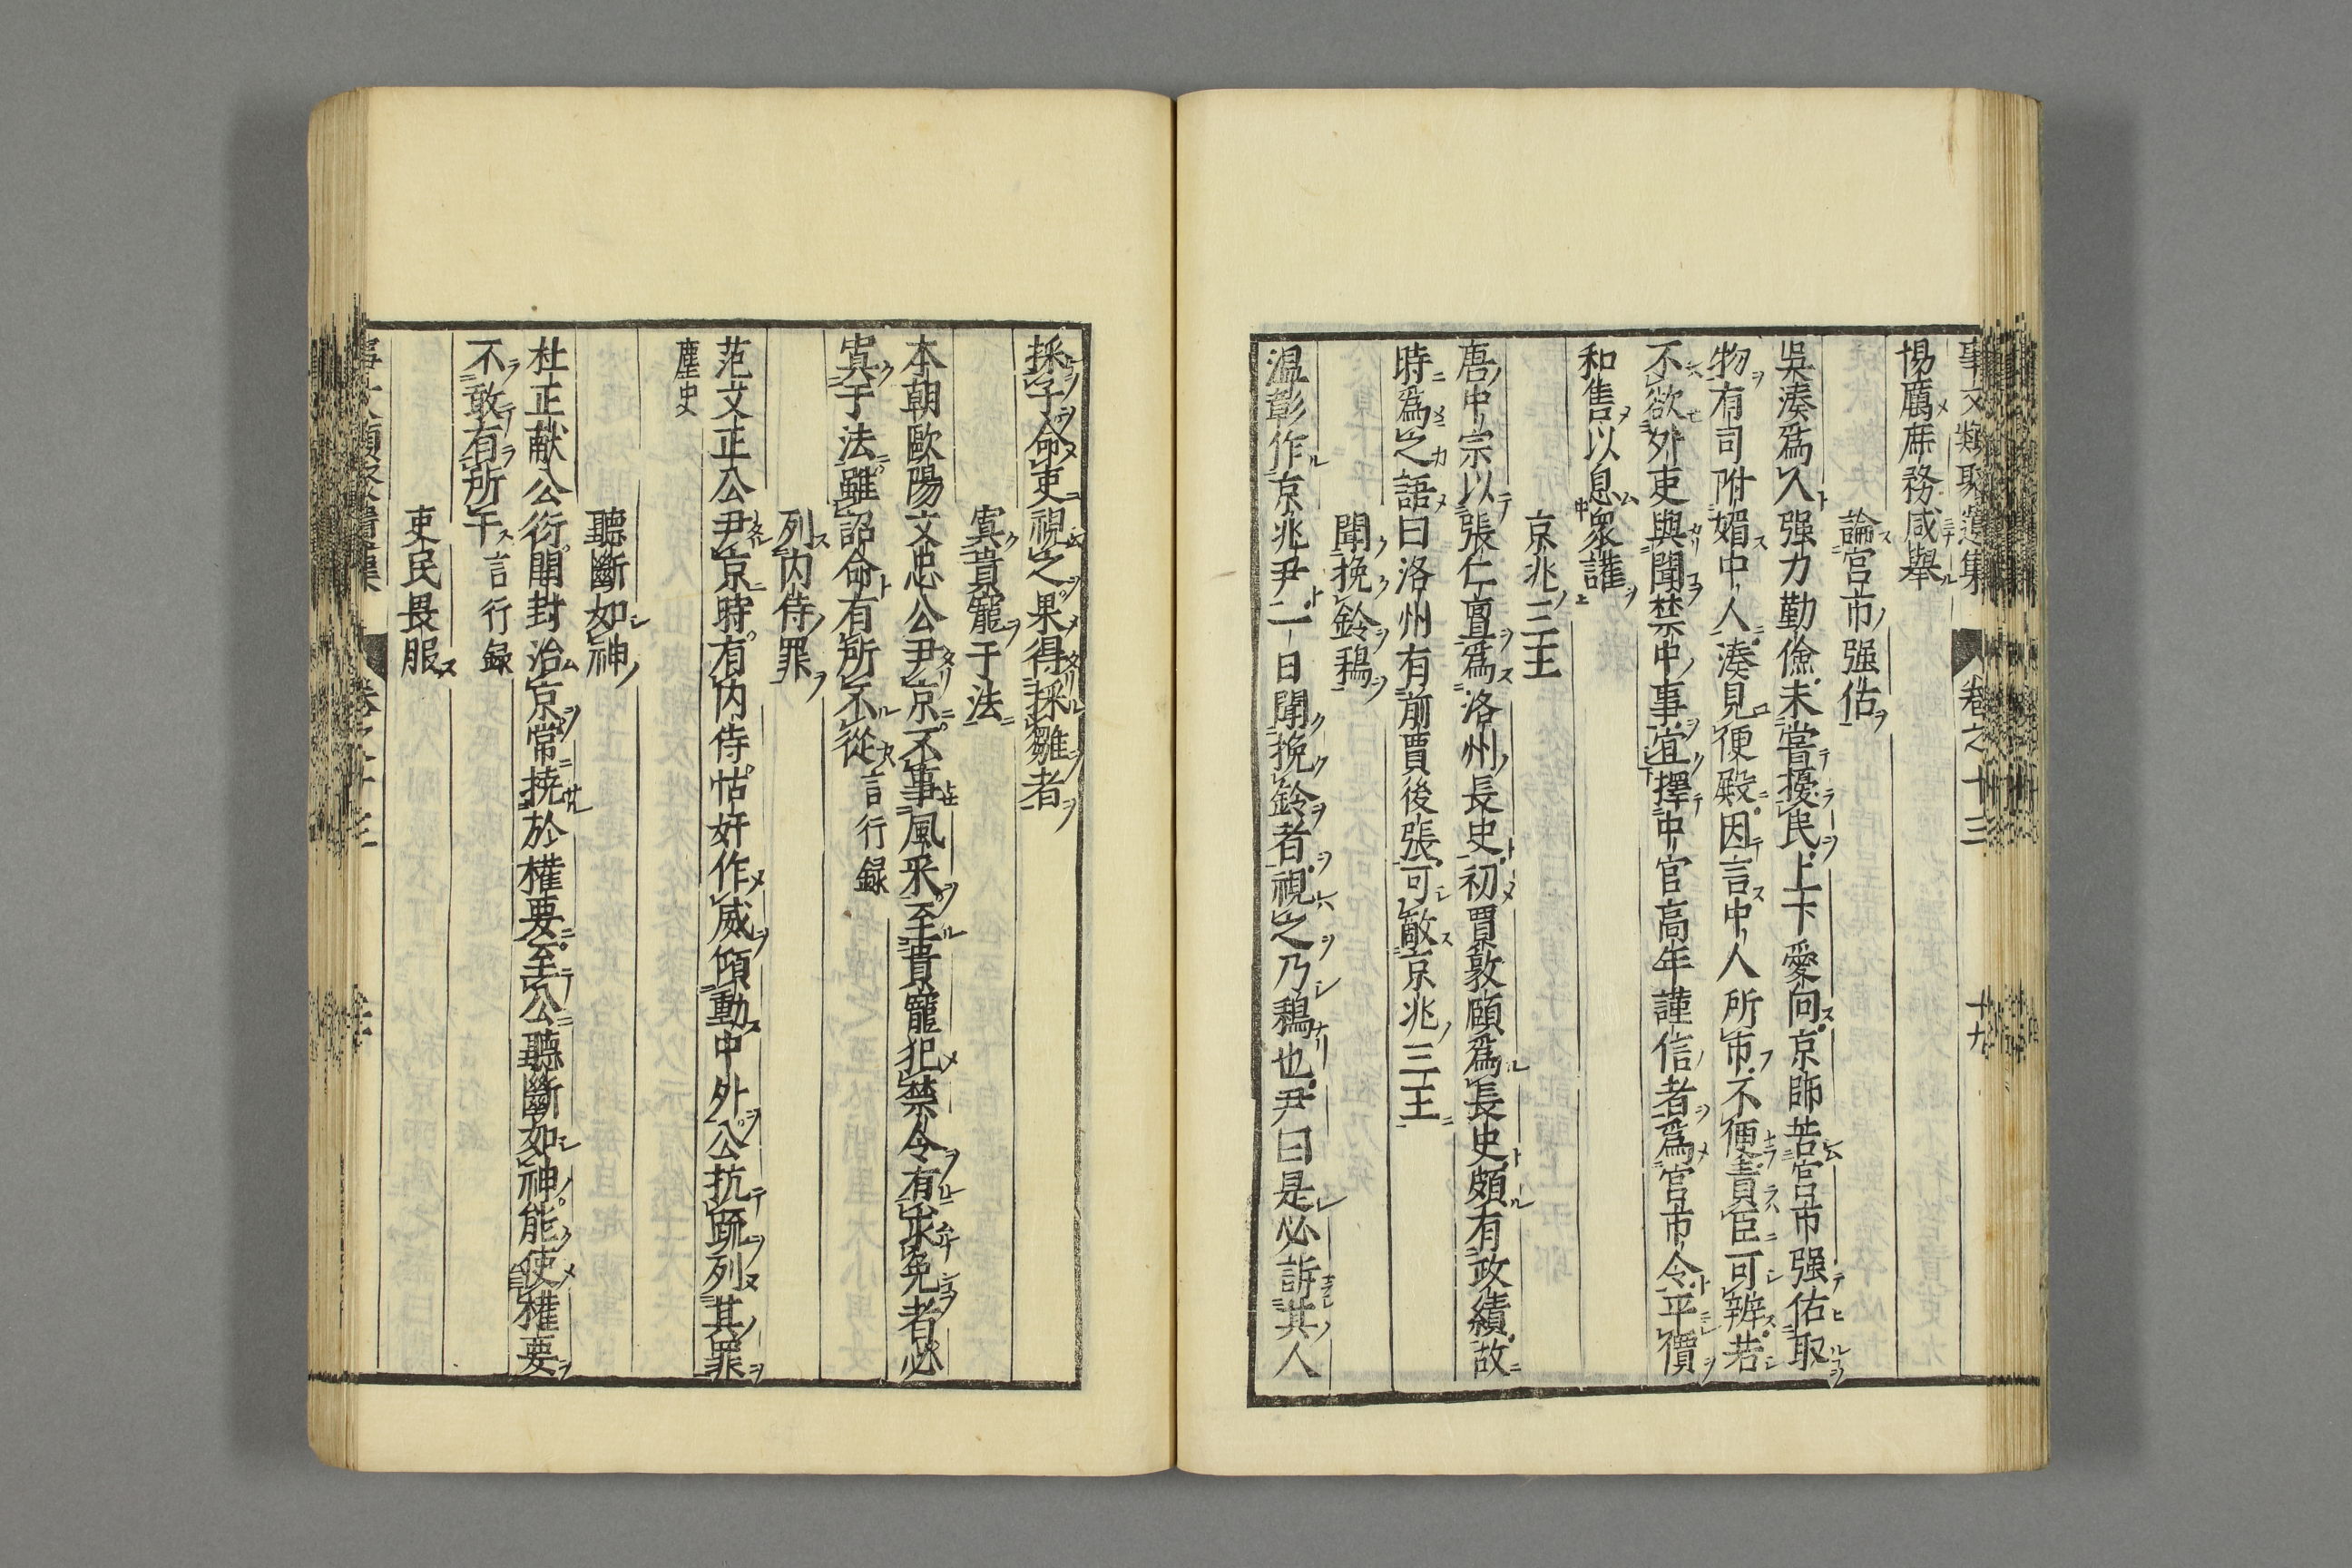 事文類聚遺集 卷之十三 十九
惕厲庶務咸舉
論宮市强估
吳湊爲人强力勤儉未嘗擾民上下愛向京師苦宮市强估取
物有司附媚中人湊見便殿因言中人所市不便責臣可辨若
不欲外吏與聞禁中事宜擇中官高年謹信者爲宮市令平價
和售以息衆讙
京兆三王
唐中宗以張仁亶爲洛州長史初賈敦頤爲長史頗有政績故
時爲之語曰洛州有前賈後張可敵京兆三王
聞挽鈴鵶
温彰作京兆尹二日聞挽鈴者視之乃鵶也尹曰是必訴其人
採子命吏視之果得採雛者
寘貴寵于法
本朝歐陽文忠公尹京不事風采至貴寵犯禁令有求免者必
寘于法雖詔命有所不從言行録
列内侍罪
范文正公尹京時有内侍怙奸作威傾動中外公抗疏列其罪
塵史
聽斷如神
杜正献公衍開封治京常撓於權要至公聽斷如神能使權要
不敢有所干言行録
吏民畏服